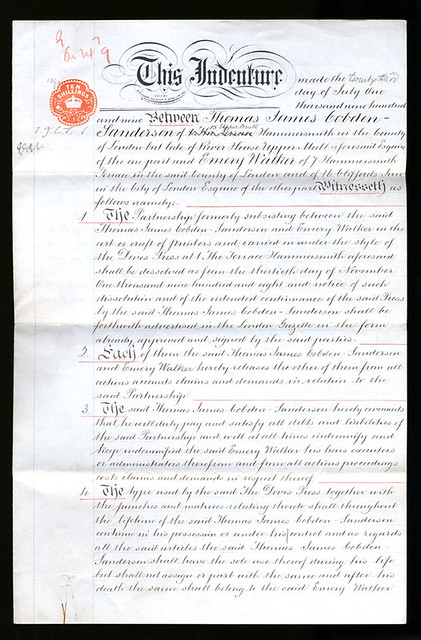 TEN
SHILLINGS
This Indenture made the twenty third
day of July One
thousand nine hundred
and nine Between Thomas James Cobden-
Sanderson of 15 Upper Mall Hammersmith in the County
of London but late of River House Upper Mall aforesaid Esquire
of the one part and Emery Walker of 7 Hammersmith
Terrace in the said County of London and of 16 Cliffords Inn
in the City of London Esquire of the other part Witnesseth as
follows namely:-
1. The Partnership formerly subsisting between the said
Thomas James Cobden-Sanderson and Emery Walker in the
art or craft of printers and carried on under the style of
the Doves Press at 1, The Terrace Hammersmith aforesaid
shall be dissolved as from the thirtieth day of November
One thousand nine hundred and eight and notice of such
dissolution and of the intended continuance of the said Press
by the said Thomas James Cobden-Sanderson shall be
forthwith advertised in the London Gazette in the form
already approved and signed by the said parties.
2. Each of them the said Thomas James Cobden-Sanderson
and Emery Walker hereby releases the other of them from all
actions accounts claims and demands in relation to the
said Partnership
3. The said Thomas James Cobden-Sanderson hereby covenants
that he will duly pay and satisfy all debts and liabilities of
the said Partnership and will at all times indemnify and
keep indemnified the said Emery Walker his heirs executors
or administrators therefrom and from all actions proceedings
costs claims and demands in respect thereof
4. The type used by the said The Doves Press together with
the punches and matrices relating thereto shall throughout
the lifetime of the said Thomas James Cobden-Sanderson
continue in his possession or under his control and as regards
all the said articles the said Thomas James Cobden-
Sanderson shall have the sole use thereof during his life
but shall not assign or part with the same and after his
death the same shall belong to the said Emery Walker